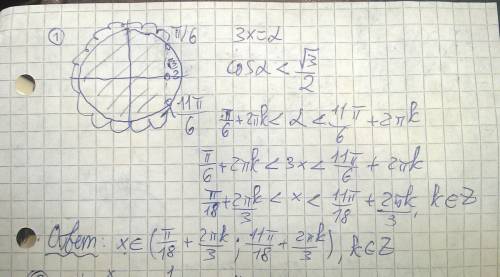 ① π/6 3x=α
√3/2 cosα < √3/2
11π/6 π/6+2πk < α < 11π/6 + 2πk
π/6+2πk < 3x < 11π/6 + 2πk
π/18+2πk/3 < x < 11π/18 + 2πk/3, k∈Z
Ответ: x∈(π/18+2πk/3; 11π/18+2πk/3), k∈Z